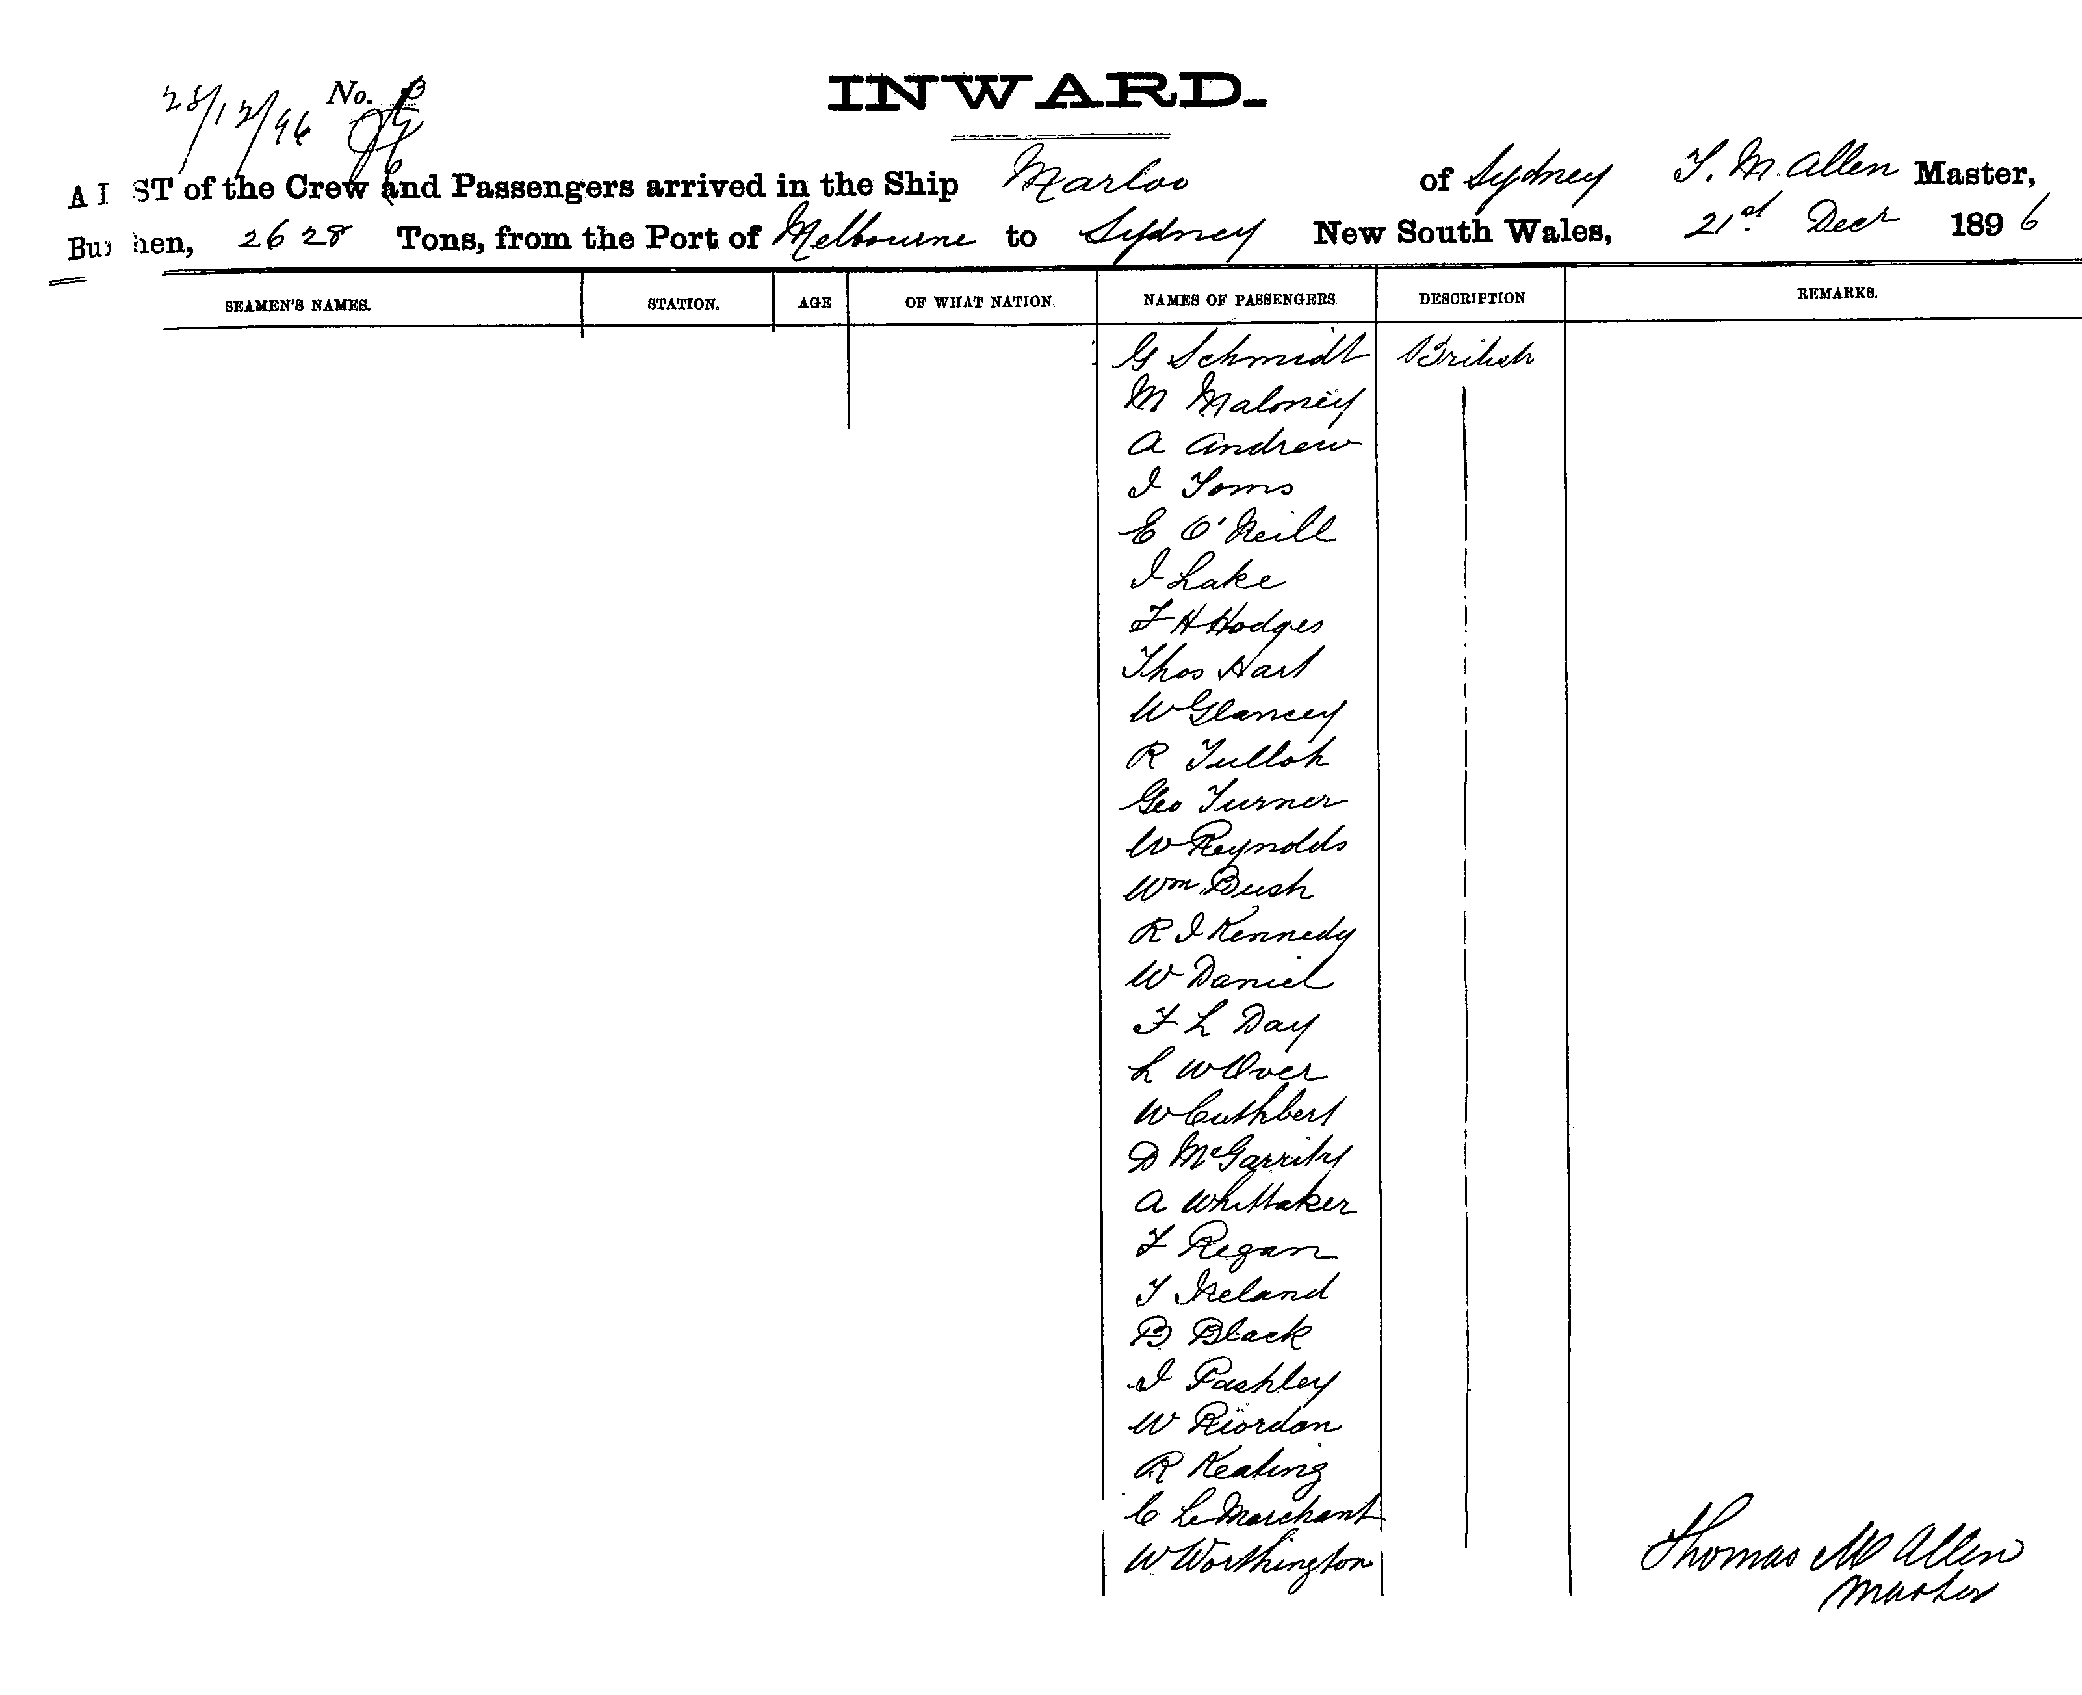 INWARD.
28/12/96 No.
A LIST of the Crew and Passengers arrived in the Ship Marloo of Sydney T. M. Allen Master,
Burthen, 2628 Tons, from the Port of Melbourne to Sydney New South Wales, 21st Decr 1896
SEAMEN'S NAMES. STATION. AGE OF WHAT NATION. NAMES OF PASSENGERS DESCRIPTION REMARKS.
G Schmidt British
M Maloney
A Andrew
J Toms
E O'Neill
J Lake
F H Hodges
Thos Hart
W Glancey
R Tulloh
Geo Turner
W Reynolds
Wm Bush
R J Kennedy
W Daniel
F L Day
L W Over
W Cuthbert
D McGarrity
A Whittaker
F Regan
T Ireland
B Black
J Pashley
W Riordan
R Keating
C Le Marchant
W Worthington
Thomas M Allen
Master